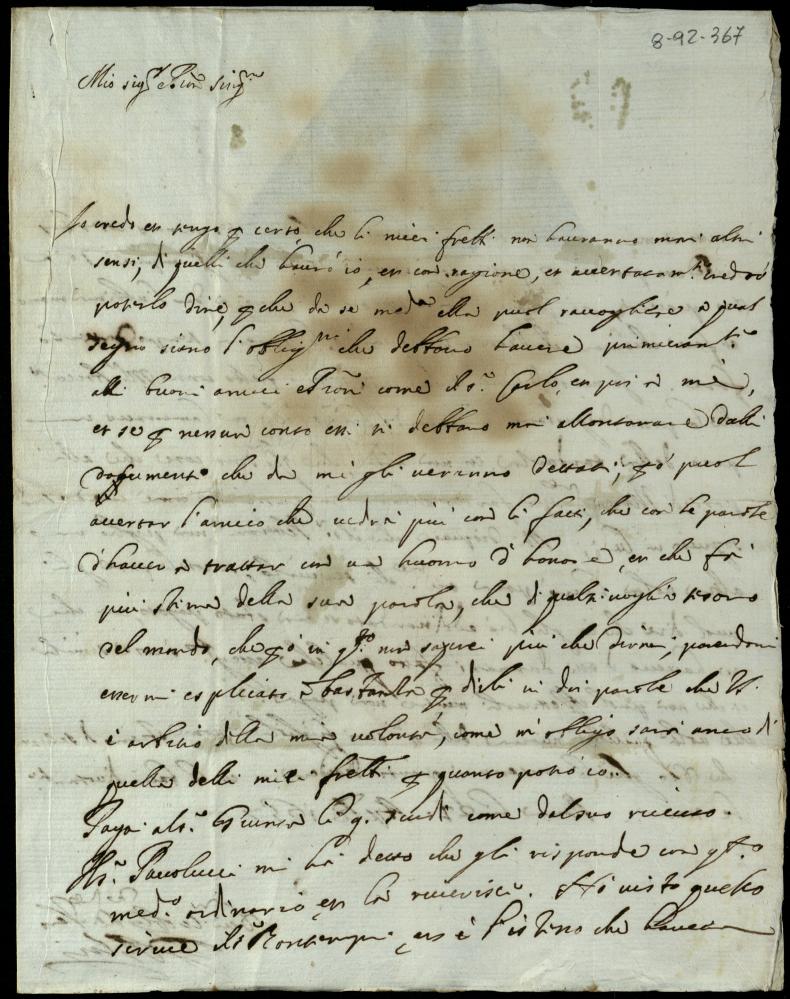 8-92-367
Mio sig.r e Pron sing.re
Io credo et tengo p certo che li miei frelli non haueranno mai altri
sensi, di quelli che hauerò io, et con ragione, et credo
poterlo dire, p che da se med.a ella puol raccogliere a qual
segno siano l'obblig.ni che debbano hauere
alli buoni amici e Proni come il s.r Carlo, et poi a me,
et se p nessun conto essi si debbano mai allontanare dalli
che da me gli veranno dettati, p ò puol
accertar l'amico che uedrà più con li fatti, che con le parole
d'hauer a trattar con un huomo d'honore, et che fà
più stima della sua parola, che di qualsiuoglia tesoro
del mondo, che p ò in q.to non saprei più che dirmi, parendomi
essermi esplicato a bastanza p dirli in doi parole che VS.
è arbitro della mia uolontà, come m'obbligo sarà anco di
quella delli miei frelli p quanto potrò io.
Pagai al s.r li 9. scudi come dal suo riceuo.
Il s.r Paolucci mi hà detto che gli risponde con q.to
med.o ordinario et la riuerisce. Hò uisto quello
scriue il s.r et è l'istesso che haueua